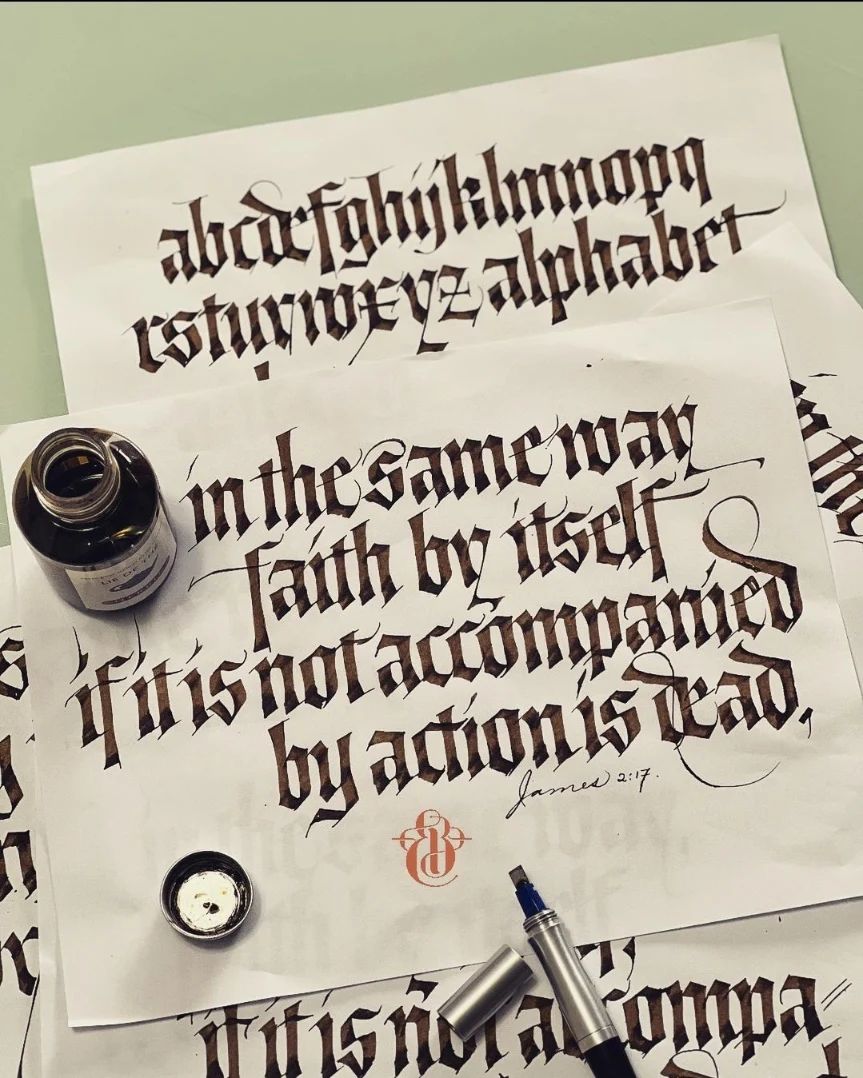 abcdefghijklmnopq
rstuvwxyz alphabet
in the same way
faith by itself
if it is not accompanied
by action is dead,
James 2:17.
if it is not accompa=